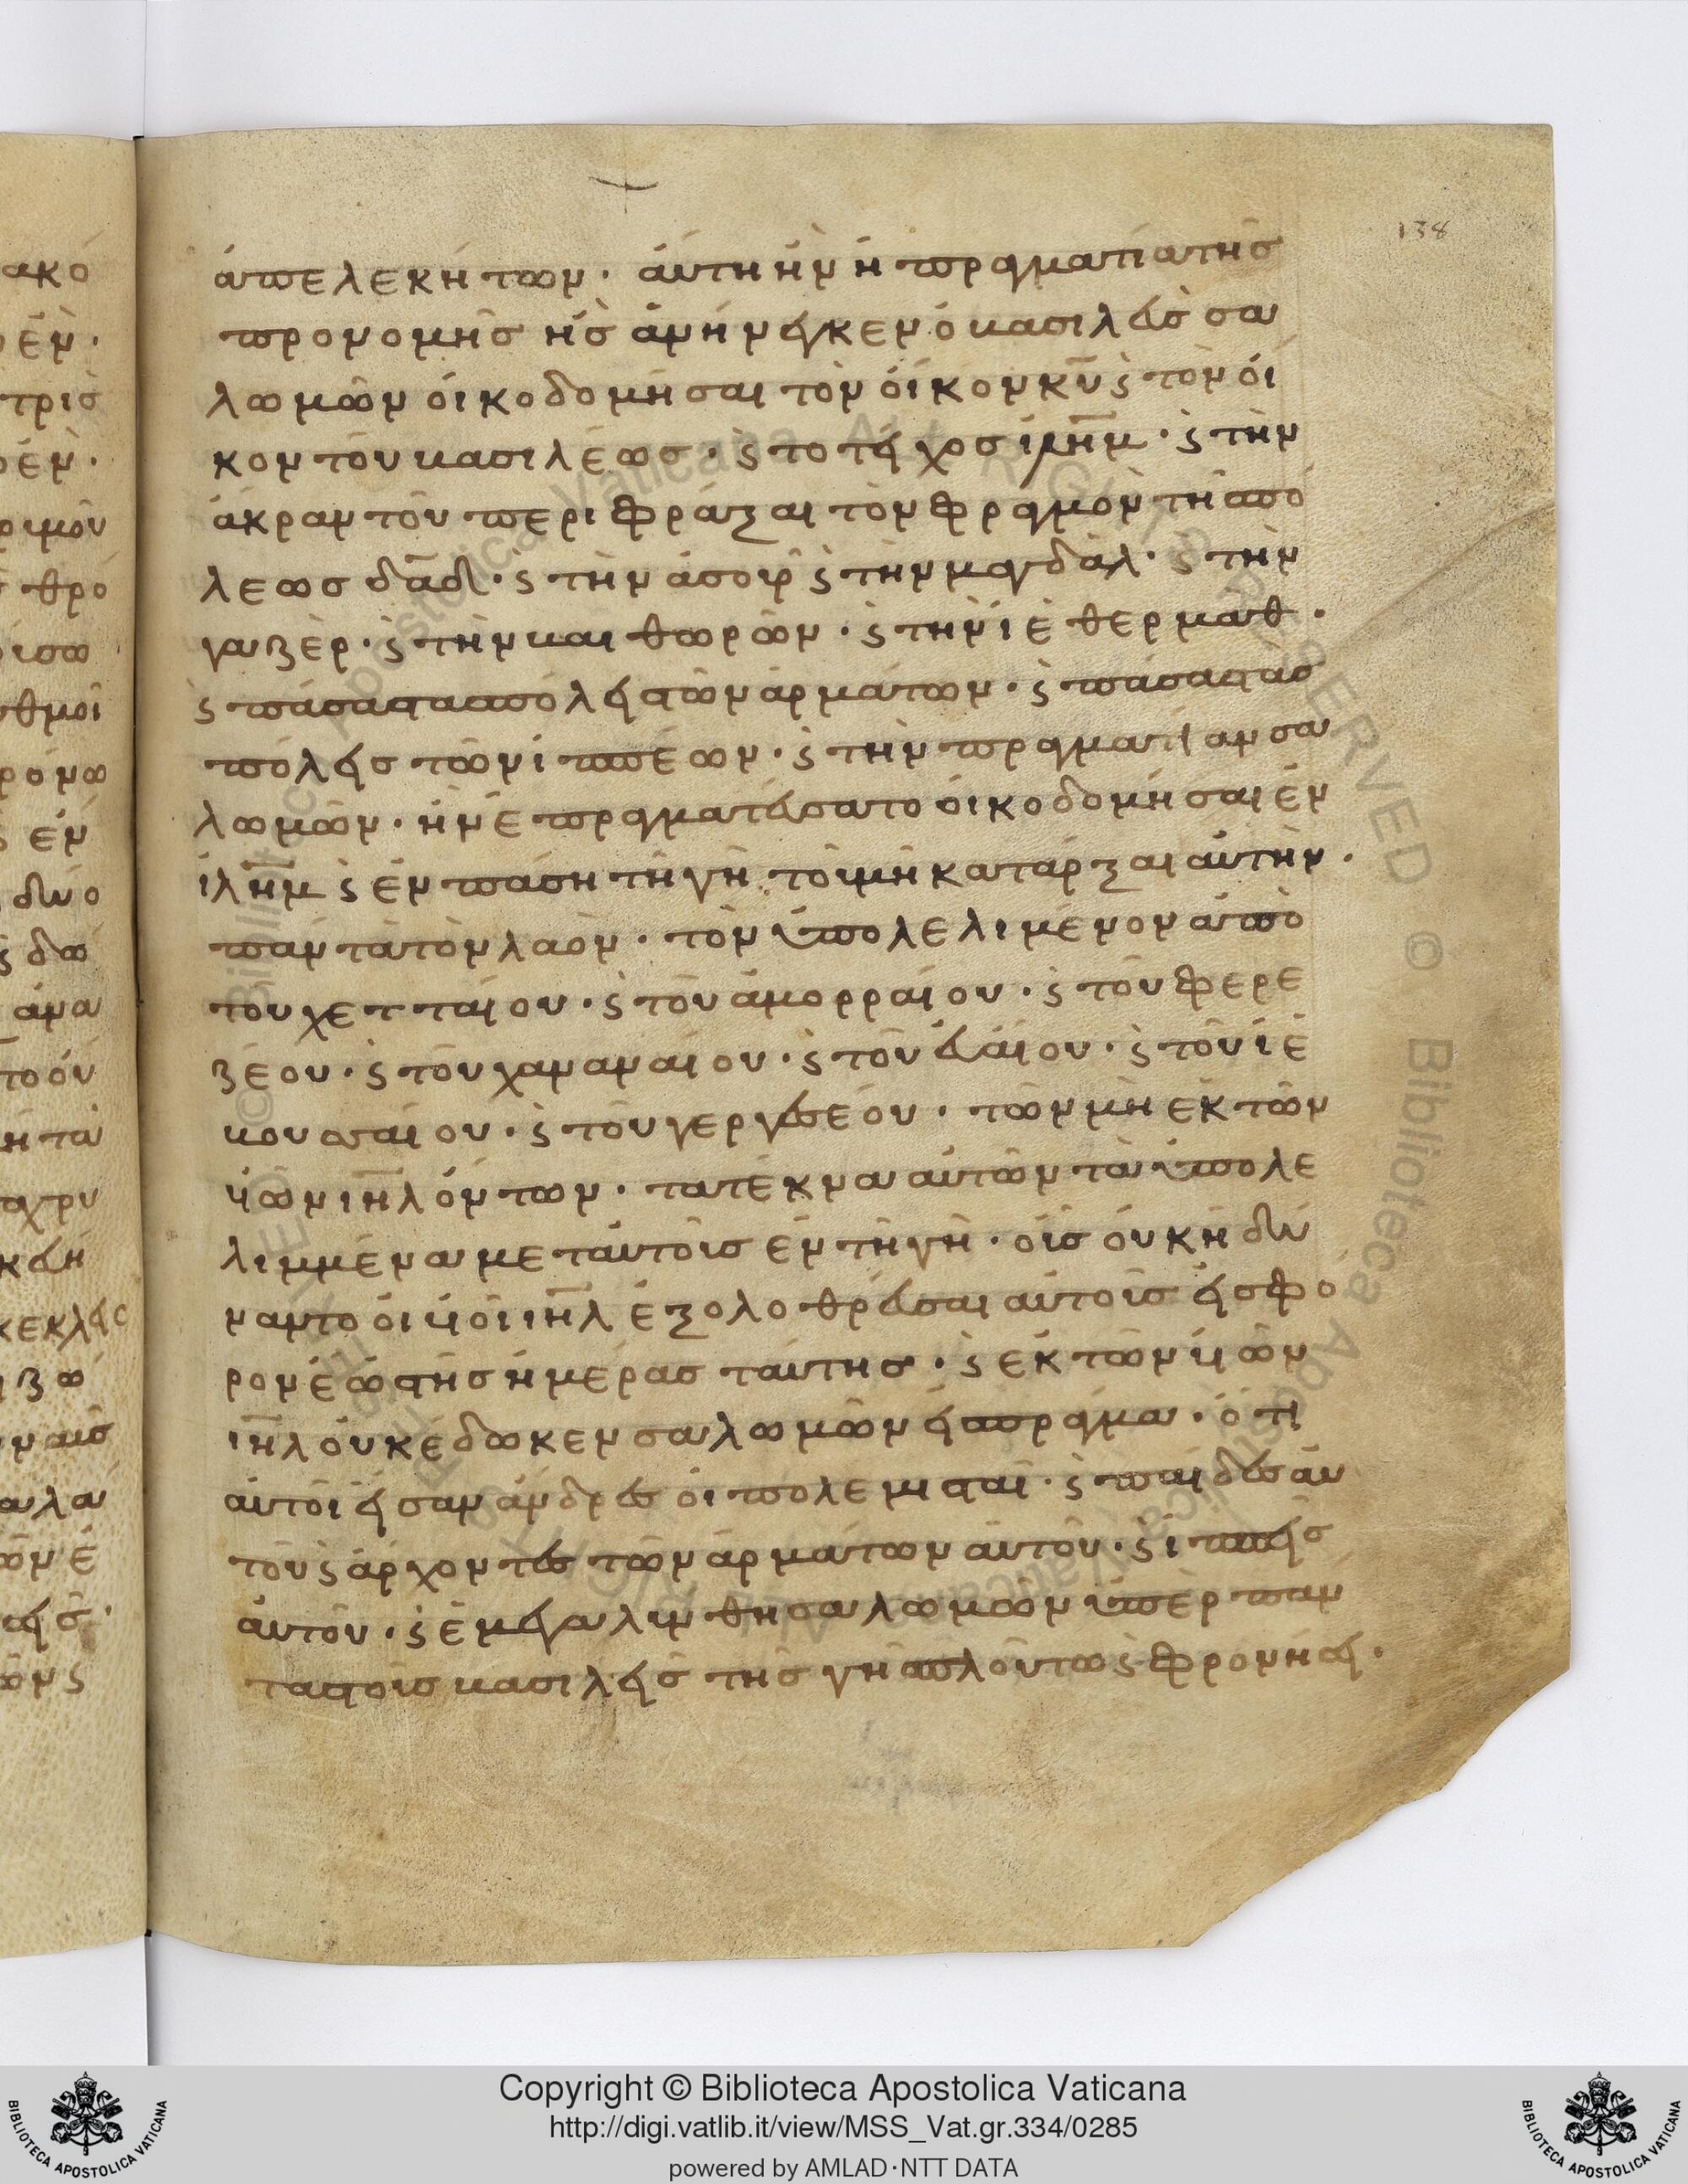 138
ἀπελεκήτων· αὕτη ἦν ἡ πραγματία τῆς
προνομῆς ἧς ἀνήνεγκεν ὁ βασιλεὺς σα
λωμῶν οἰκοδομῆσαι τὸν οἶκον κ̅υ̅ ϛ τὸν οἶ
κον τοῦ βασιλέως· ϛ το τεῖχος ἰλ̅η̅μ̅· ϛ τὴν
ἄκραν τοῦ περιφράξαι τὸν φραγμὸν τῆ πό
λεως δ̅α̅δ̅· ϛ τὴν ἀσοὺρ ϛ τὴν μαγδὰλ· ϛ τὴν
γαζὲρ· ϛ τὴν βαιθωρῶν· ϛ τὴν ἰὲθερμὰθ·
ϛ πάσας τὰς πόλεις τῶν ἁρμάτων· ϛ πάσας τὰς
πόλεις τῶν ἱππέων· ϛ τὴν πραγματίαν σα
λωμῶν· ἣν ἐπραγματεύσατο οἰκοδομῆσαι ἐν
ἰλ̅η̅μ̅ ϛ ἐν πάση τῆ γῆ τοῦ μὴ κατάρξαι αὐτὴν·
πάντα τὸν λαὸν· τὸν ὑπολελιμένον ἀπὸ
του χετταίου· ϛ τοῦ ἀμορραίου· ϛ τοῦ φερε
ζέου· ϛ τοῦ χαναναίου· ϛ τοῦ εὐαίου· ϛ τοῦ ἰέ
βουσαίου· ϛ τοῦ γεργεσέου· τῶν μὴ ἐκ τῶν
υἱῶν ι̅η̅λ̅ ὄντων· τα τέκνα αὐτῶν τὰ ὑπολε
λιμμένα μετ αὐτοῖς ἐν τῆ γῆ· οἷς οὐκ ἠδύ
ναντο οἱ υἱοὶ ι̅η̅λ̅ ἐξολοθρεῦσαι αὐτοῖς εἰς φό
ρον ἕως τῆς ἡμέρας ταύτης· ϛ ἐκ τῶν υἱῶν
ι̅η̅λ̅ οὐκ ἔδωκεν σαλωμῶν εἰς πράγμα· ὅτι
αὐτοὶ εἶσαν ἄνδρες οἱ πολεμισταὶ· ϛ παῖδες αὐ
τοῦ ϛ ἄρχοντες τῶν ἁρμάτων αὐτοῦ· ϛ ἱππεῖς
αὐτοῦ· ϛ ἐμεγαλύνθη σαλωμῶν ὑπὲρ πάν
τας τοῖς βασιλεῖς τῆς γῆς πλούτω ϛ φρονήσει·
ακό
έν·
τρισ
έν·
θρό
ισω
θμοὶ
ρόνω
έν
δύο
ϛ δω
ἀνα
το οὐ
η τὰ
χρυ
κεκλεισ
ζω
ναισ
αλα
ῶν ἐ
ῶν ϛ
Copyright © Biblioteca Apostolica Vaticana
http://digi.vatlib.it/view/MSS_Vat.gr.334/0285
powered by AMLAD·NTT DATA
BIBLIOTECA APOSTOLICA VATICANA
BIBLIOTECA APOSTOLICA VATICANA